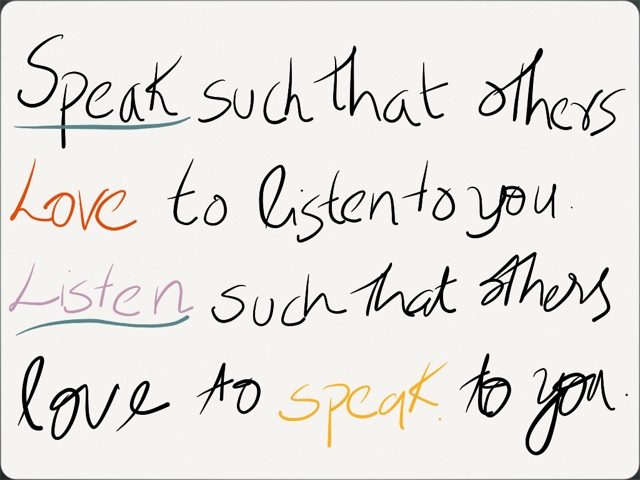 Speak such that others
Love to listen to you.
Listen such that others
love to speak. to you.